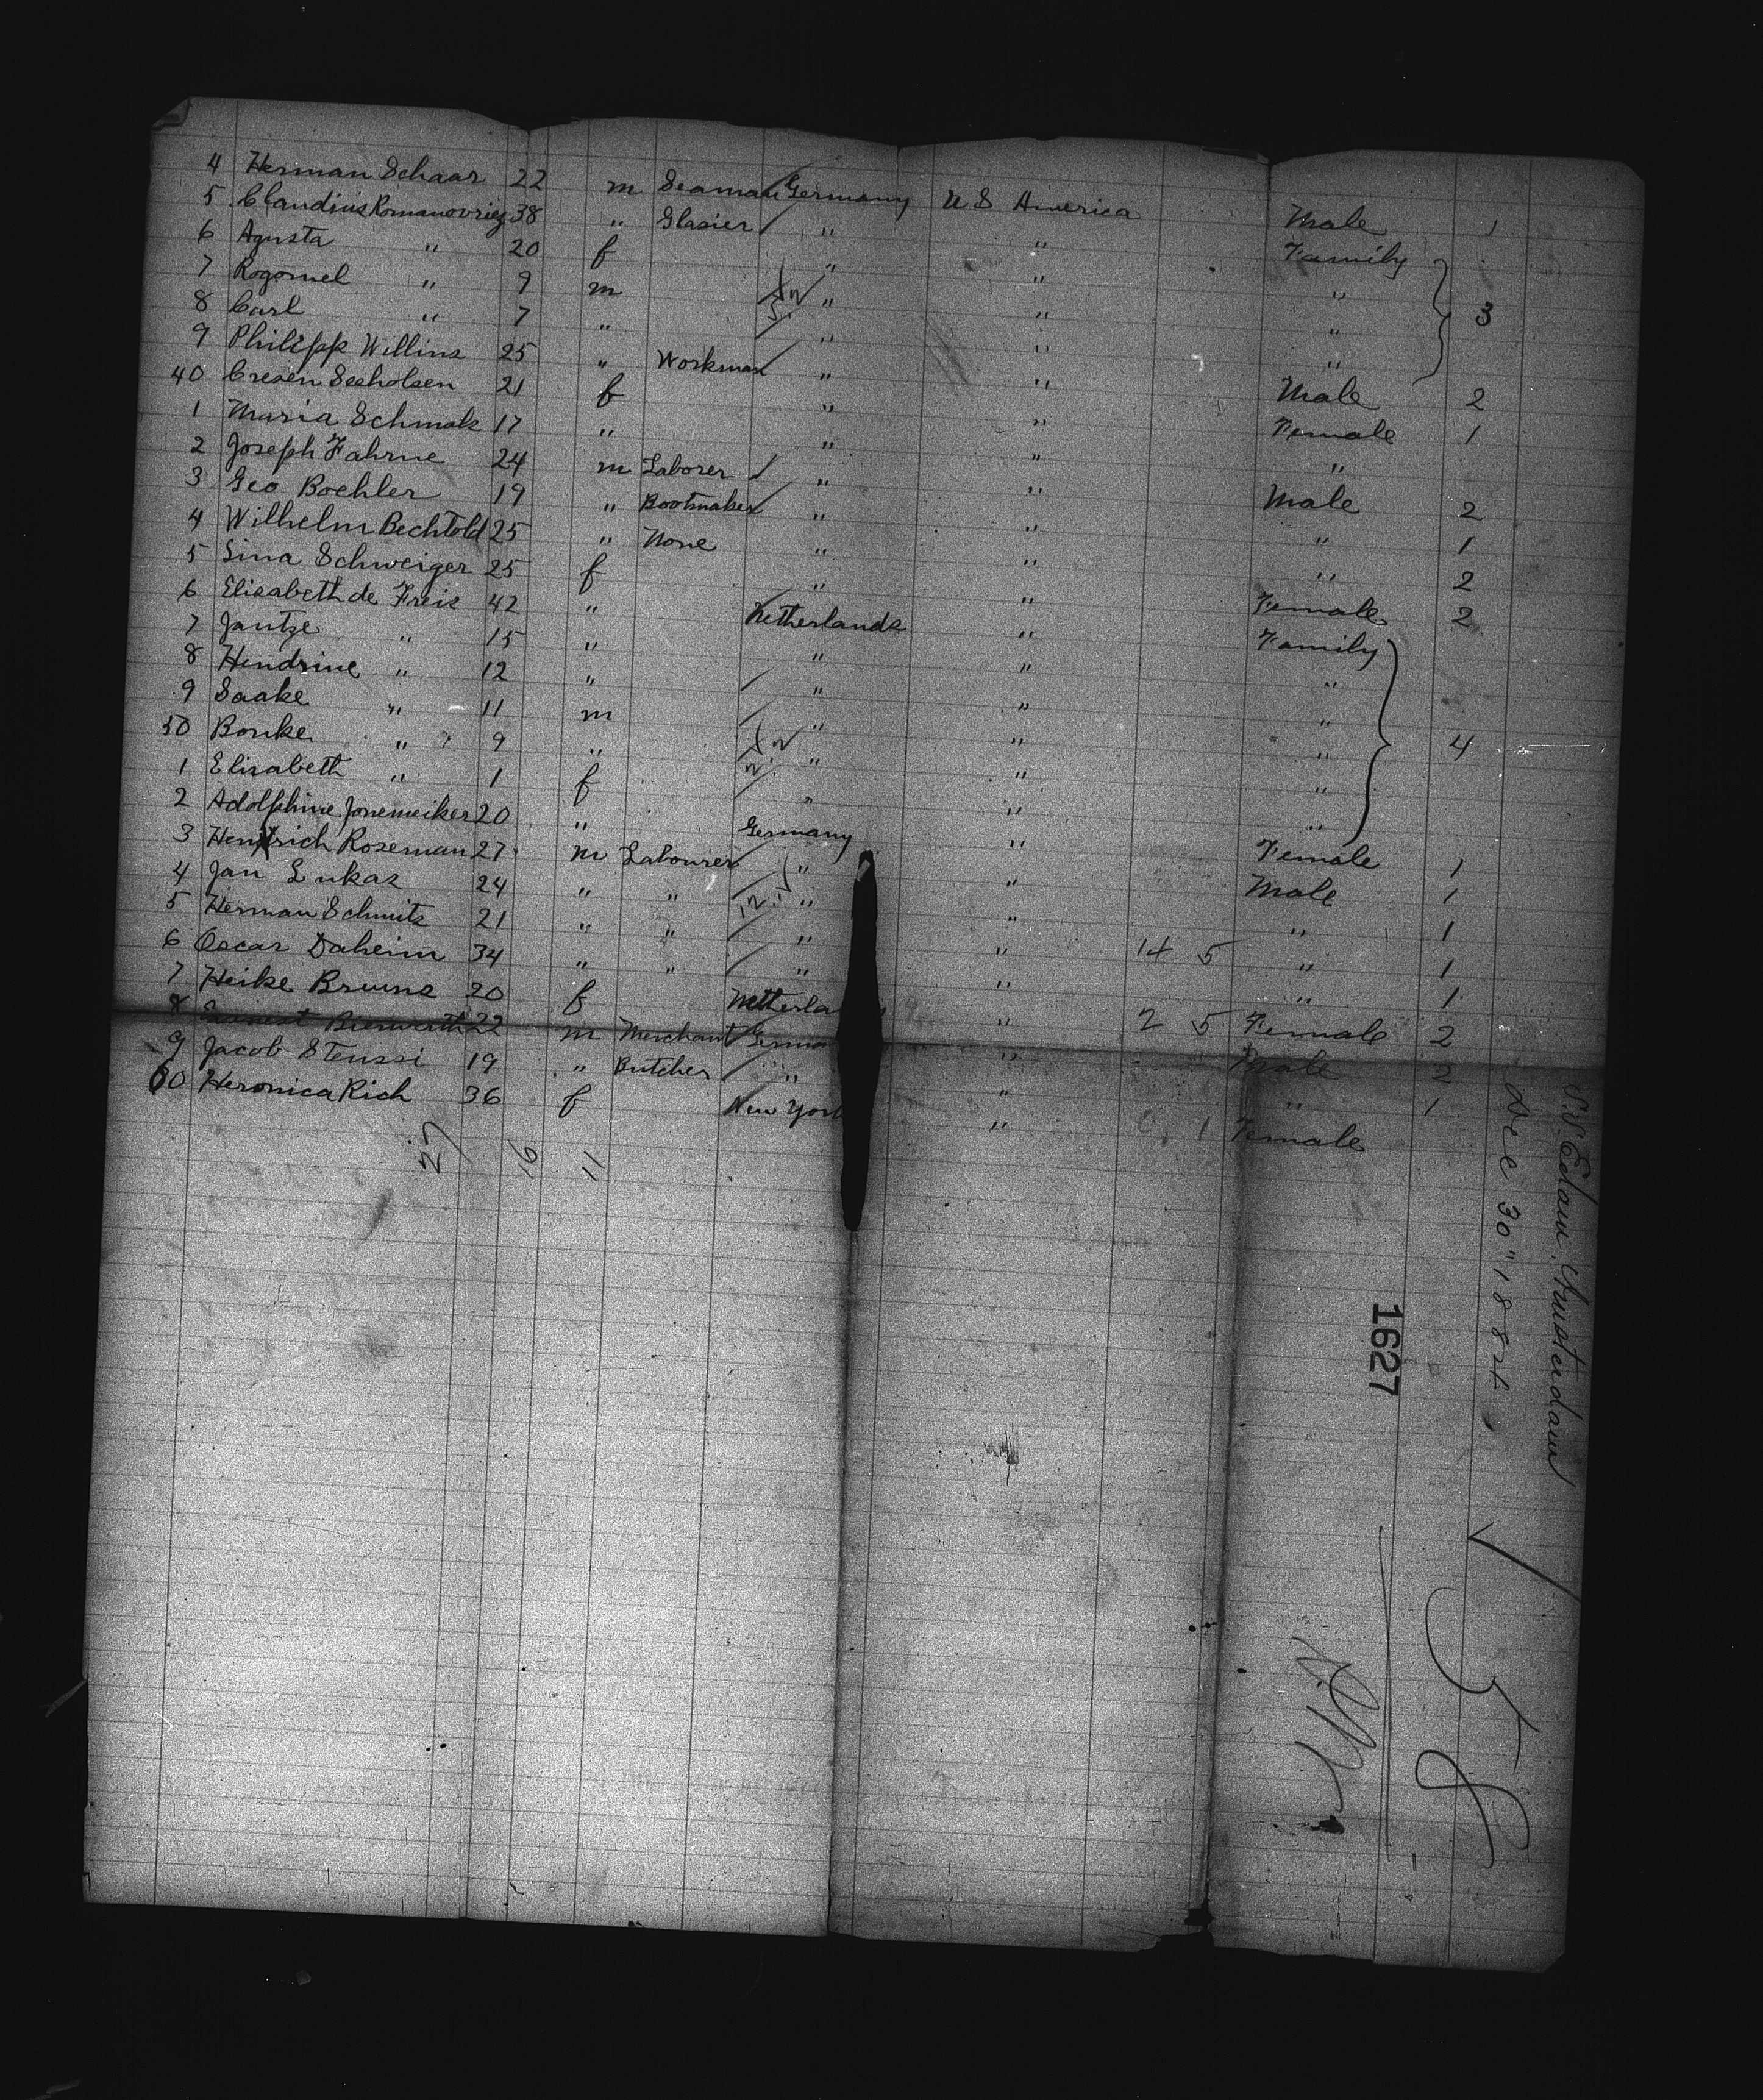 4 Herman Schaar 22 m Seaman Germany U S America Male 1
5 Claudius Romanovriez 38 " Glasier " " Family
6 Agusta " 20 f " " "
7 Rogomel " 9 m " " "
8 Carl " 7 " " " " 3
9 Philipp Willins 25 " Workman " " Male 2
40 Cresen Seeholsen 21 f " " Female 1
1 Maria Schmals 17 " " " "
2 Joseph Fahrne 24 m Laborer " " Male 2
3 Geo Boehler 19 " Bootmaker " " " 1
4 Wilhelm Bechtold 25 " None " " " 2
5 Lina Schweiger 25 f " " Female 2
6 Elisabeth de Freis 42 " Netherlands " Family
7 Jantze " 15 " " " "
8 Hendrine " 12 " " " "
9 Saake " 11 m " " "
50 Bonke " 9 " " " " 4
1 Elisabeth " 1 f " " "
2 Adolphine Jonemeiker 20 " Germany " Female 1
3 Hendrich Roseman 27 m Labourer " " Male 1
4 Jan Lukas 24 " " " " " 1
5 Herman Schmits 21 " " " " 14 5 " 1
6 Oscar Daheim 34 " " " " " 1
7 Heike Bruns 20 f Netherla " 2 5 Female 2
8 22 m Merchant Germa " Male 2
9 Jacob Stenssi 19 " Butcher " " " 1
60 Heronica Rich 36 f New York " 0 1 Female
27 16 11
S.S. Edam, Amsterdam
Dec 30" 1884
1627
58